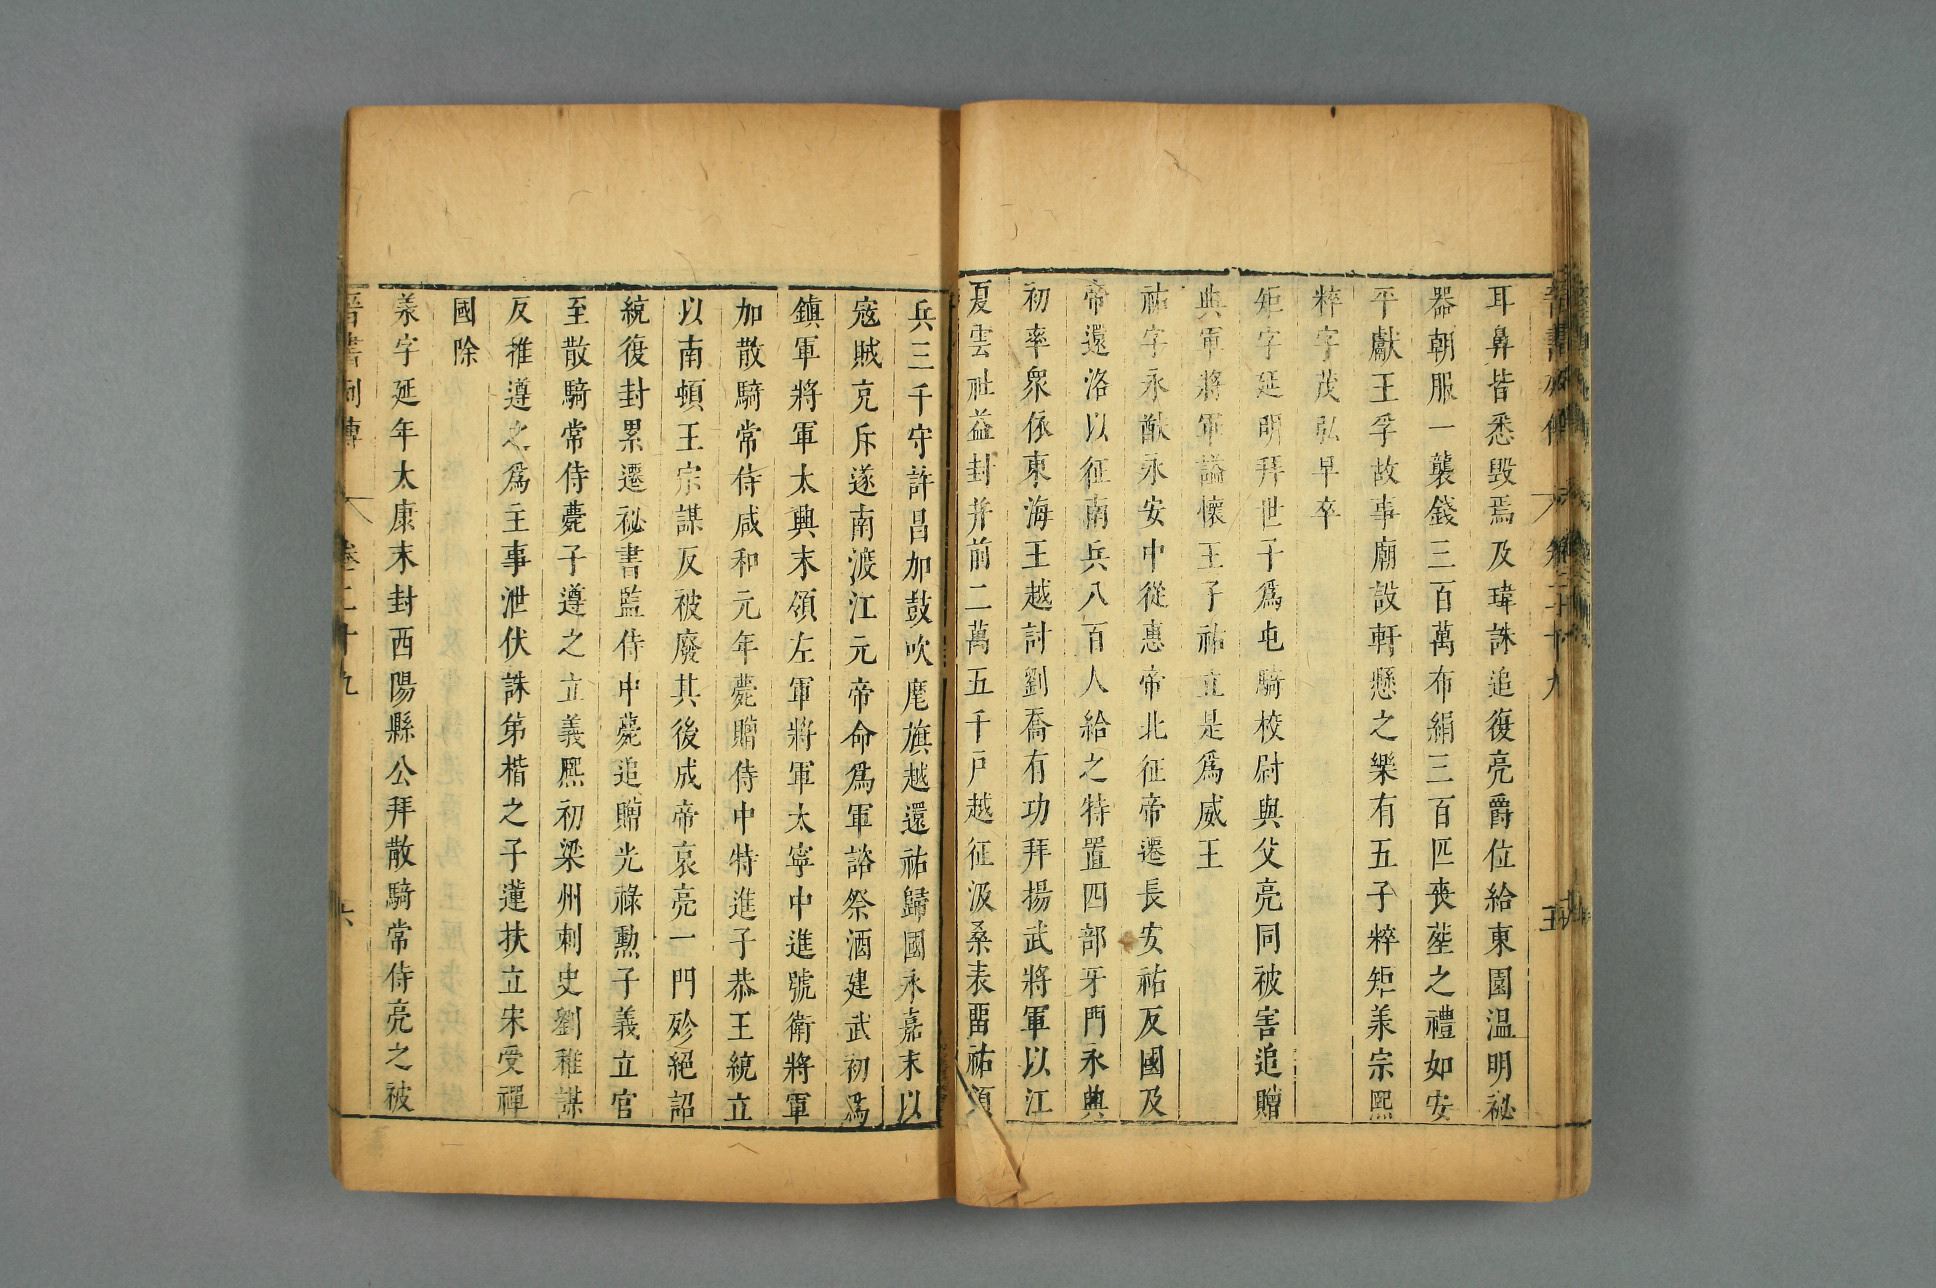 晉書列傳 卷二十九 五
耳鼻皆悉毀焉及瑋誅追復亮爵位給東園温明祕
器朝服一襲錢三百萬布絹三百匹喪塟之禮如安
平獻王孚故事廟設軒懸之樂有五子粹矩羕宗熙
粹字茂弘早卒
矩字延明拜世子爲屯騎校尉與父亮同被害追贈
典軍將軍謚懷王子祐立是爲威王
祐字永猷永安中從惠帝北征帝遷長安祐反國及
帝還洛以征南兵八百人給之特置四部牙門永興
初率衆依東海王越討劉喬有功拜揚武將軍以江
夏雲社益封并前二萬五千戸越征汲桑表畱祐領
兵三千守許昌加鼓吹麾旗越還祐歸國永嘉末以
寇賊克斥遂南渡江元帝命爲軍諮祭酒建武初爲
鎮軍將軍太興末領左軍將軍太寧中進號衛將軍
加散騎常侍咸和元年薨贈侍中特進子恭王統立
以南頓王宗謀反被廢其後成帝哀亮一門殄絕詔
統復封累遷祕書監侍中薨追贈光祿勳子義立官
至散騎常侍薨子遵之立義熙初梁州刺史劉稚謀
反推遵之爲主事泄伏誅弟楷之子蓮扶立宋受禪
國除
羕字延年太康末封西陽縣公拜散騎常侍亮之被
晉書列傳 卷二十九 六